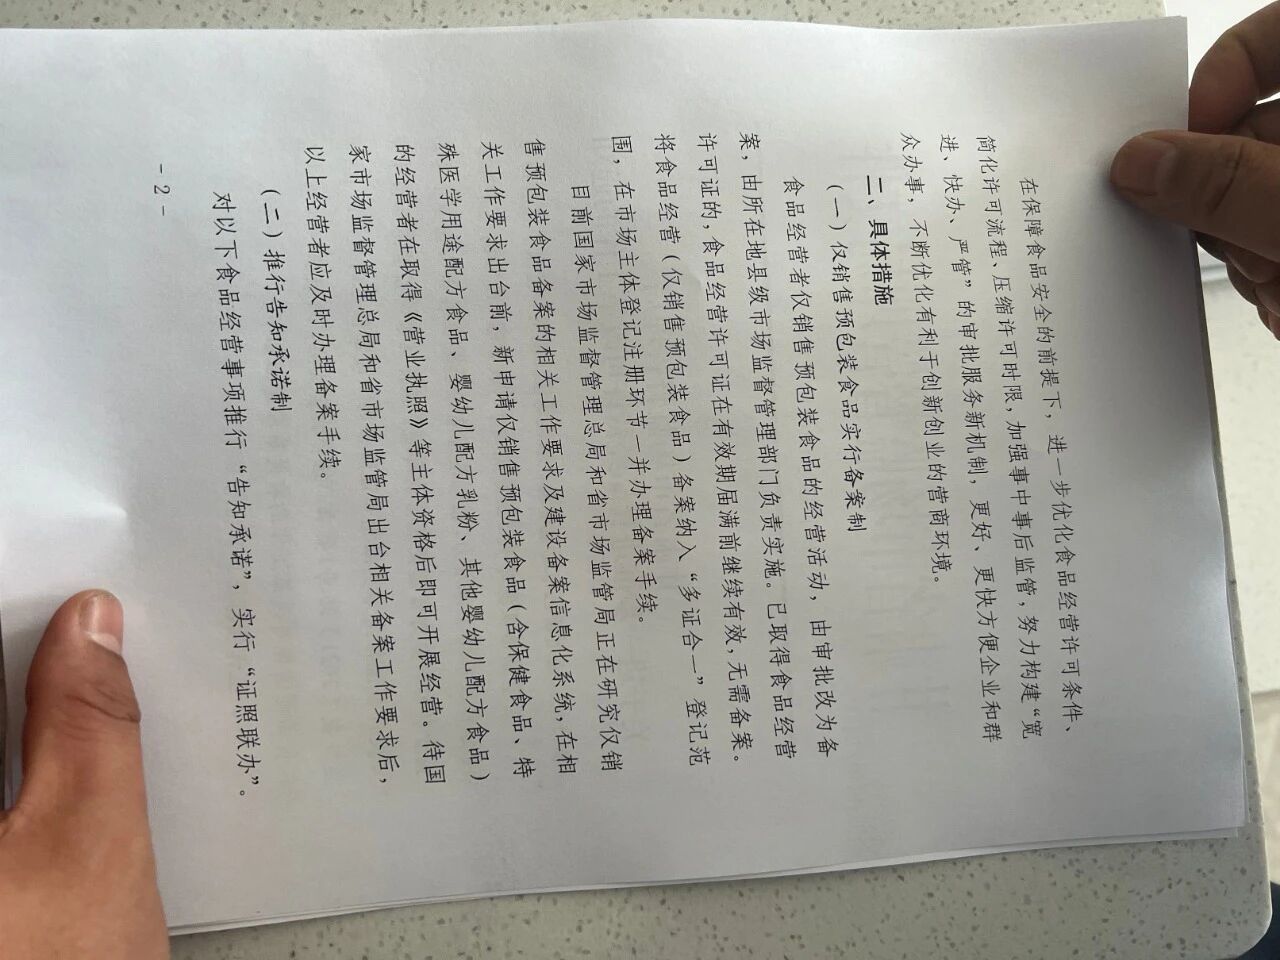 在保障食品安全的前提下，进一步优化食品经营许可条件、
简化许可流程、压缩许可时限，加强事中事后监管，努力构建“宽
进、快办、严管”的审批服务新机制，更好、更快方便企业和群
众办事，不断优化有利于创新创业的营商环境。
二、具体措施
（一）仅销售预包装食品实行备案制
食品经营者仅销售预包装食品的经营活动，由审批改为备
案，由所在地县级市场监督管理部门负责实施。已取得食品经营
许可证的，食品经营许可证在有效期届满前继续有效，无需备案。
将食品经营（仅销售预包装食品）备案纳入“多证合一”登记范
围，在市场主体登记注册环节一并办理备案手续。
目前国家市场监督管理总局和省市场监管局正在研究仅销
售预包装食品备案的相关工作要求及建设备案信息化系统，在相
关工作要求出台前，新申请仅销售预包装食品（含保健食品、特
殊医学用途配方食品、婴幼儿配方乳粉、其他婴幼儿配方食品）
的经营者在取得《营业执照》等主体资格后即可开展经营。待国
家市场监督管理总局和省市场监管局出台相关备案工作要求后，
以上经营者应及时办理备案手续。
（二）推行告知承诺制
对以下食品经营事项推行“告知承诺”，实行“证照联办”。
- 2 -